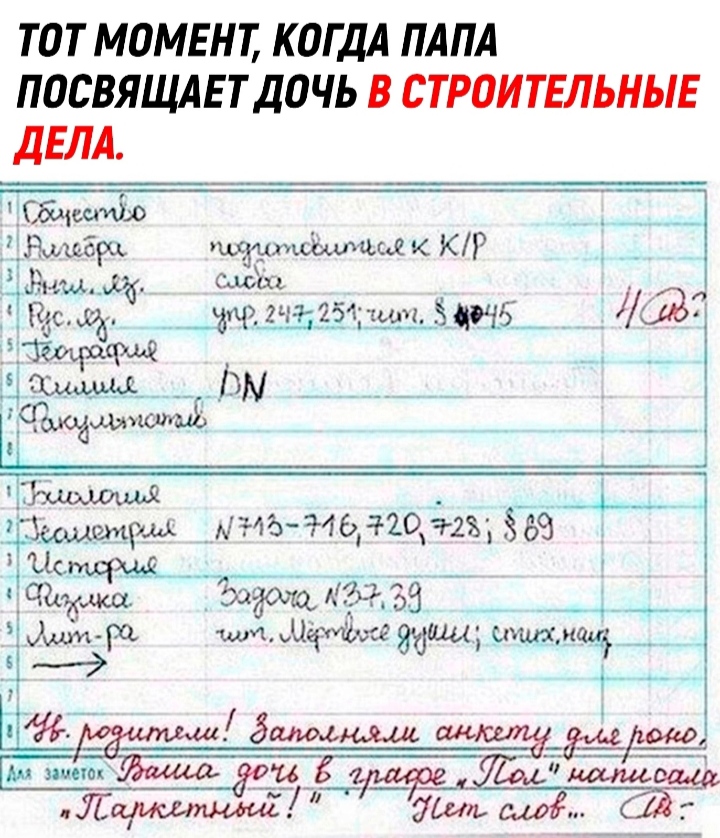 ТОТ МОМЕНТ, КОГДА ПАПА
ПОСВЯЩАЕТ ДОЧЬ В СТРОИТЕЛЬНЫЕ
ДЕЛА.
1 Общество
2 Алгебра подготовиться к К/Р
3 Англ. яз. слова
4 Рус. яз. упр. 247, 251; чит. § 45 4
5 География
6 Химия DN
7 Факультатив
8
1 Биология
2 Геометрия N713-716, 720, 728; § 69
3 История
4 Физика Задача N37, 39
5 Лит-ра чит. Мёртвые души; стих. наиз
6 →
7
8 Ув. родители! Заполняли анкету для роно.
Для заметок Ваша дочь в графе „Пол" написала
„Паркетный!" Нет слов...